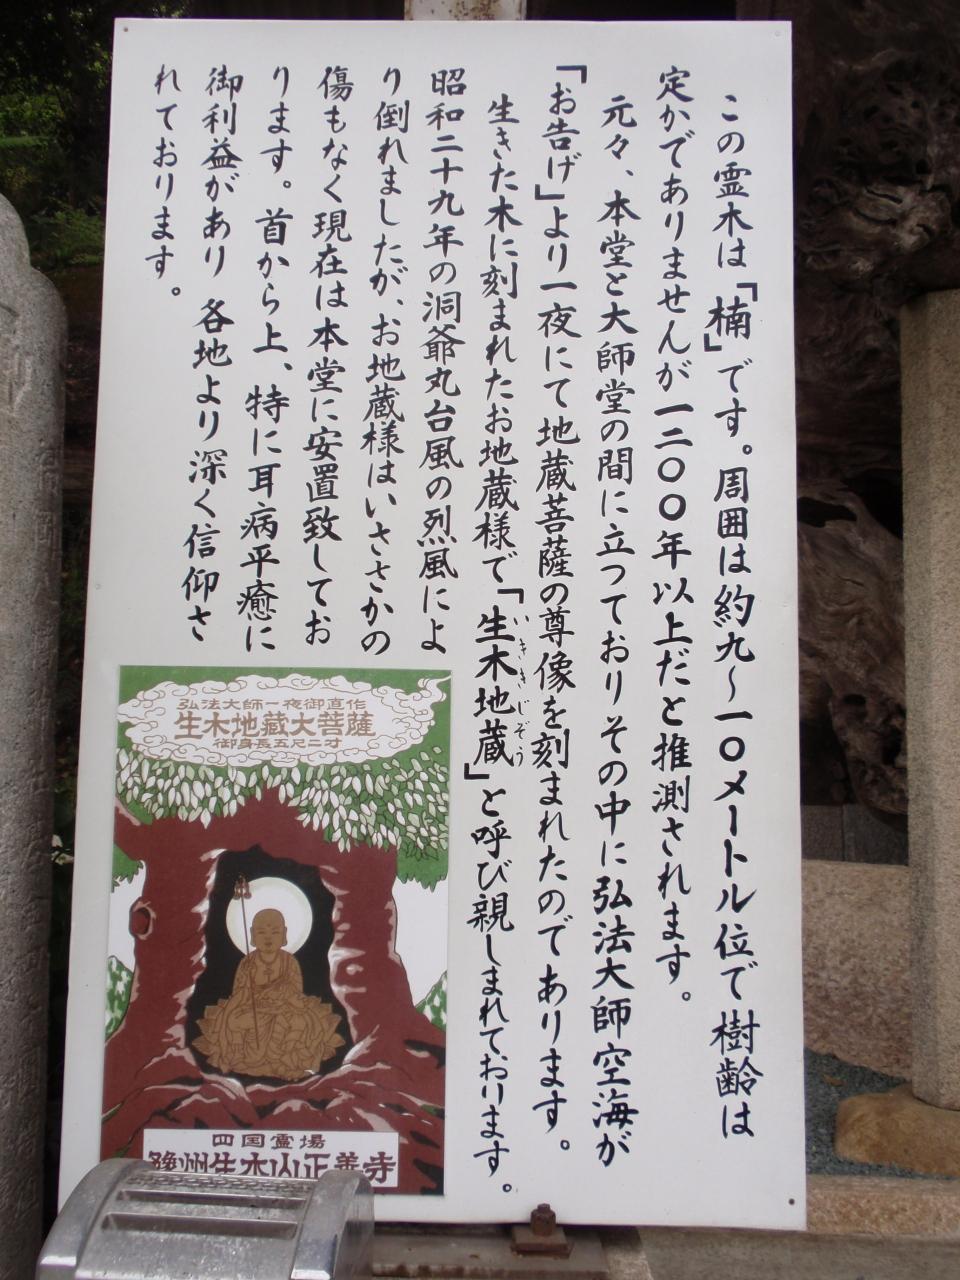 この霊木は「楠」です。周囲は約九〜一〇メートル位で樹齢は
定かでありませんが一二〇〇年以上だと推測されます。
元々、本堂と大師堂の間に立っておりその中に弘法大師空海が
「お告げ」より一夜にて地蔵菩薩の尊像を刻まれたのであります。
生きた木に刻まれたお地蔵様で「生木地蔵」と呼び親しまれております。
いききじぞう
昭和二十九年の洞爺丸台風の烈風によ
り倒れましたが、お地蔵様はいささかの
傷もなく現在は本堂に安置致してお
ります。首から上、特に耳病平癒に
御利益があり各地より深く信仰さ
れております。
弘法大師一夜御直作
生木地蔵大菩薩
御身長五尺二寸
四国霊場
豫州生木山正善寺